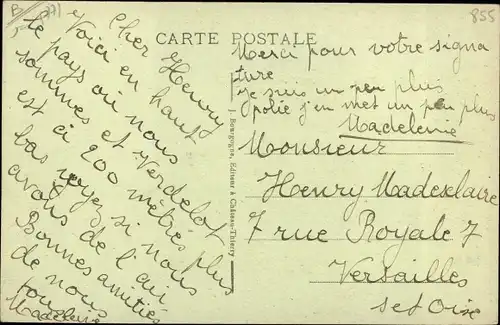 B 77)
855
CARTE POSTALE
Cher Henry
Voici en haut
le pays où nous
sommes et Verdelot
est à 200 mètres plus
bas voyez si nous
avons de l'air
Bonnes amitiés
de nous
tous
Madeleine
Merci pour votre signa
ture
je suis un peu plus
polie j'en met un peu plus
Madeleine
J. Bourgogne, Editeur à Château-Thierry
Monsieur
Henry Madexclaire
7 rue Royale 7
Versailles
S et Oise